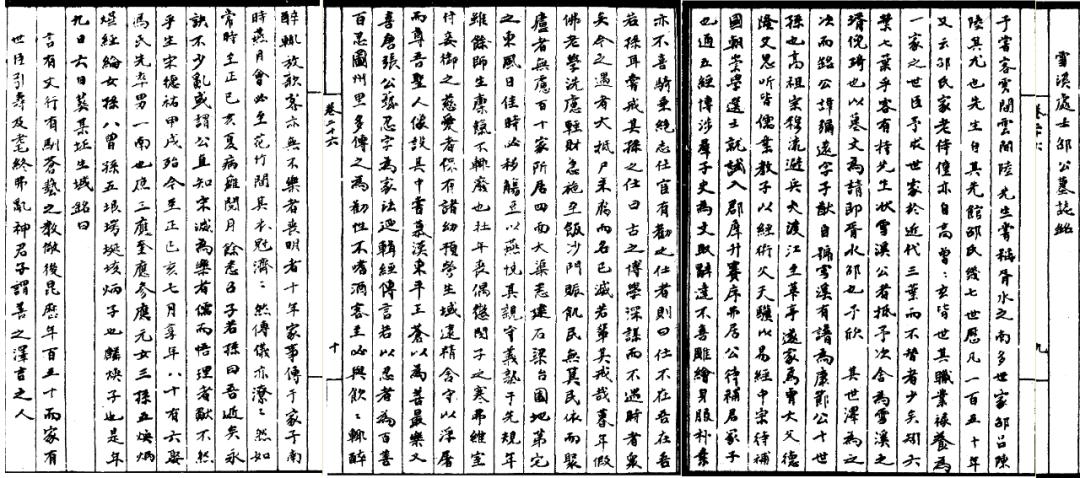 雪溪處士邵公墓誌銘
予嘗客雲間雲間陸先生嘗稱胥水之南多世家邵呂陳
陸其尤也先生自其先館邵氏幾七世歷凡一百五十年
又云邵氏家老侍僮亦自高曾曾玄皆世其職業祿養為
一家之世臣予求世家於近代三葉而不替者少矣矧六
葉七葉乎客有持先生狀雪溪公者抵予次舍為雪溪之
壻倪琦也以墓文為請即胥水邵也予欣其世澤為之
次而銘公諱彌遠字子猷自號雪溪有譜為康節公十世
孫也高祖宗穆流避兵火渡江至華亭遂家焉曾大父德
隆父思聰皆儒業教子以經術父天驥以易經中宋待補
國朝崇學選士就試入郡庠升賽序弗居公待補君冢子
也通五經博涉羣子史為文取辭達不善雕繪身服朴素
九
亦不喜騎乘絕志仕宦有勸之仕者則曰仕不在吾在吾
若孫耳嘗戒其孫之仕曰古之博學深謀而不遇時者眾
矣今之遇者大抵尸素腐而名已滅若輩其戒哉暮年假
佛老學洗慮輕財急施至飯沙門賑飢民無莫民依而聚
廬者無慮百十家所居四面大渠悉建石梁台園地第宅
之東風日佳時必移觴豆以燕悅其親守義塾于先規年
雖餘師生廩餼不輟廢也壯年喪偶懲閔子之寒弗繼室
付妾御之慈愛者保育諸幼預營生域違精舍守以浮屠
而尊吾聖人像設其中嘗慕漢東平王蒼以為善最樂又
喜唐張公藝忍字為家法迺輯經傳言若以忍者為百善
百忍圖州里多傳之為勸性不嗜酒客至必與飲〻輒醉
卷二十六
十
醉輒放歌客亦無不樂者喪明者十年家事傳于冢子南
時燕月會必至花竹間其衣冠濟〻然傳儀亦潦〻然如
常時至正己亥夏病瘧閱月餘悉召子若孫曰吾逝矣永
訣不少亂或謂公且知宋滅為樂者儒而悟理者歟不然
乎生宋德祐甲戌殆今至正己亥七月享年八十有六娶
馬氏先卒男一南也庶三應奎應參應元女三孫五煥炳
堪經綸女孫八曾孫五垠堮埏垓炳子也麟煥子也是年
九日六日葬某坵生域銘曰
古有文行有馴苔藝之教敵後昆歷年百五十而家有
世臣引壽及耄終弗亂神君子謂善之澤吉之人